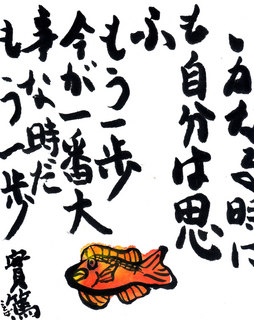 いかなる時に
も自分は思
ふ
もう一歩
今が一番大
事な時だ
もう一歩
實篤